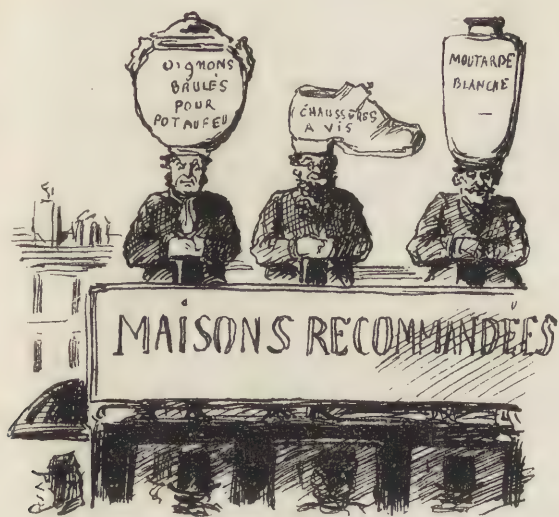 OIGNONS
BRULÉS
POUR
POT AU FEU
CHAUSSURES
A VIS
MOUTARDE
BLANCHE
MAISONS RECOMMANDÉES